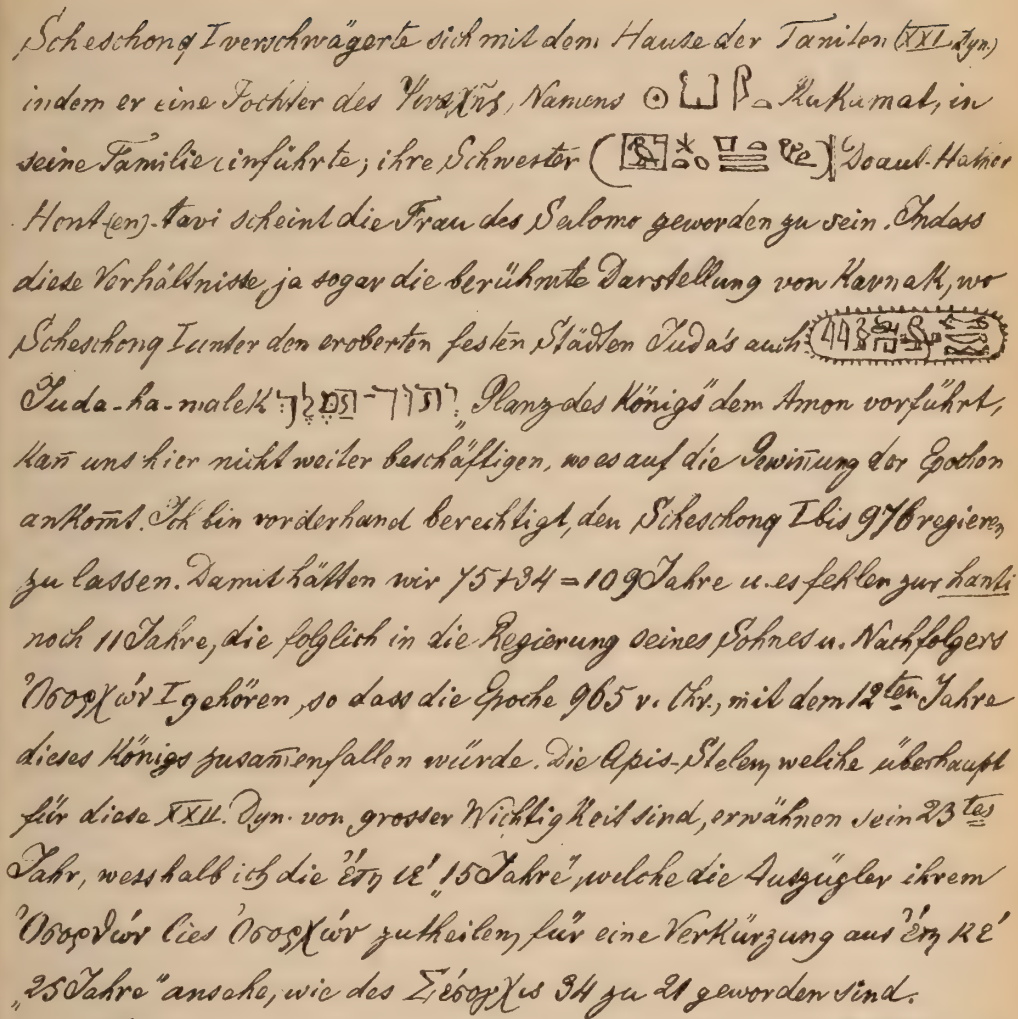 Scheschonq I verschwägerte sich mit dem Hause der Taniten (XXI. Dyn.)
indem er eine Tochter des Ψιναχῆς, Namens Kakamat, in
seine Familie einführte; ihre Schwester Doaut-Hathor
Hont-(en)-tavi scheint die Frau des Salomo geworden zu sein. Indess
diese Verhältnisse, ja sogar die berühmte Darstellung von Karnak, wo
Scheschonq I unter den eroberten festen Städten Juda's auch
Juda-ha-malek "des Königs" dem Amon vorführt,
kan̄ uns hier nicht weiter beschäftigen, wo es auf die Gewin̄ung der Epochen
ankom̄t. Ich bin vorderhand berechtigt, den Scheschonq I bis 976 regieren
zu lassen. Damit hätten wir 75+34=109 Jahre u. es fehlen zur hanti
noch 11 Jahre, die folglich in die Regierung seines Sohnes u. Nachfolgers
Ὀσορχών I gehören, so dass die Epoche 965 v. Chr., mit dem 12ten Jahre
dieses Königs zusam̄enfallen würde. Die Apis-Stelen, welche überhaupt
für diese XXII. Dyn. von grosser Wichtigkeit sind, erwähnen sein 23tes
Jahr, wesshalb ich die ἔτη ιέ „15 Jahre", welche die Auszügler ihrem
Ὀσορθών lies Ὀσορχών zutheilen, für eine Verkürzung aus ἔτη κέ
„25 Jahre" ansehe, wie des Σέσογχις 34 zu 21 geworden sind.